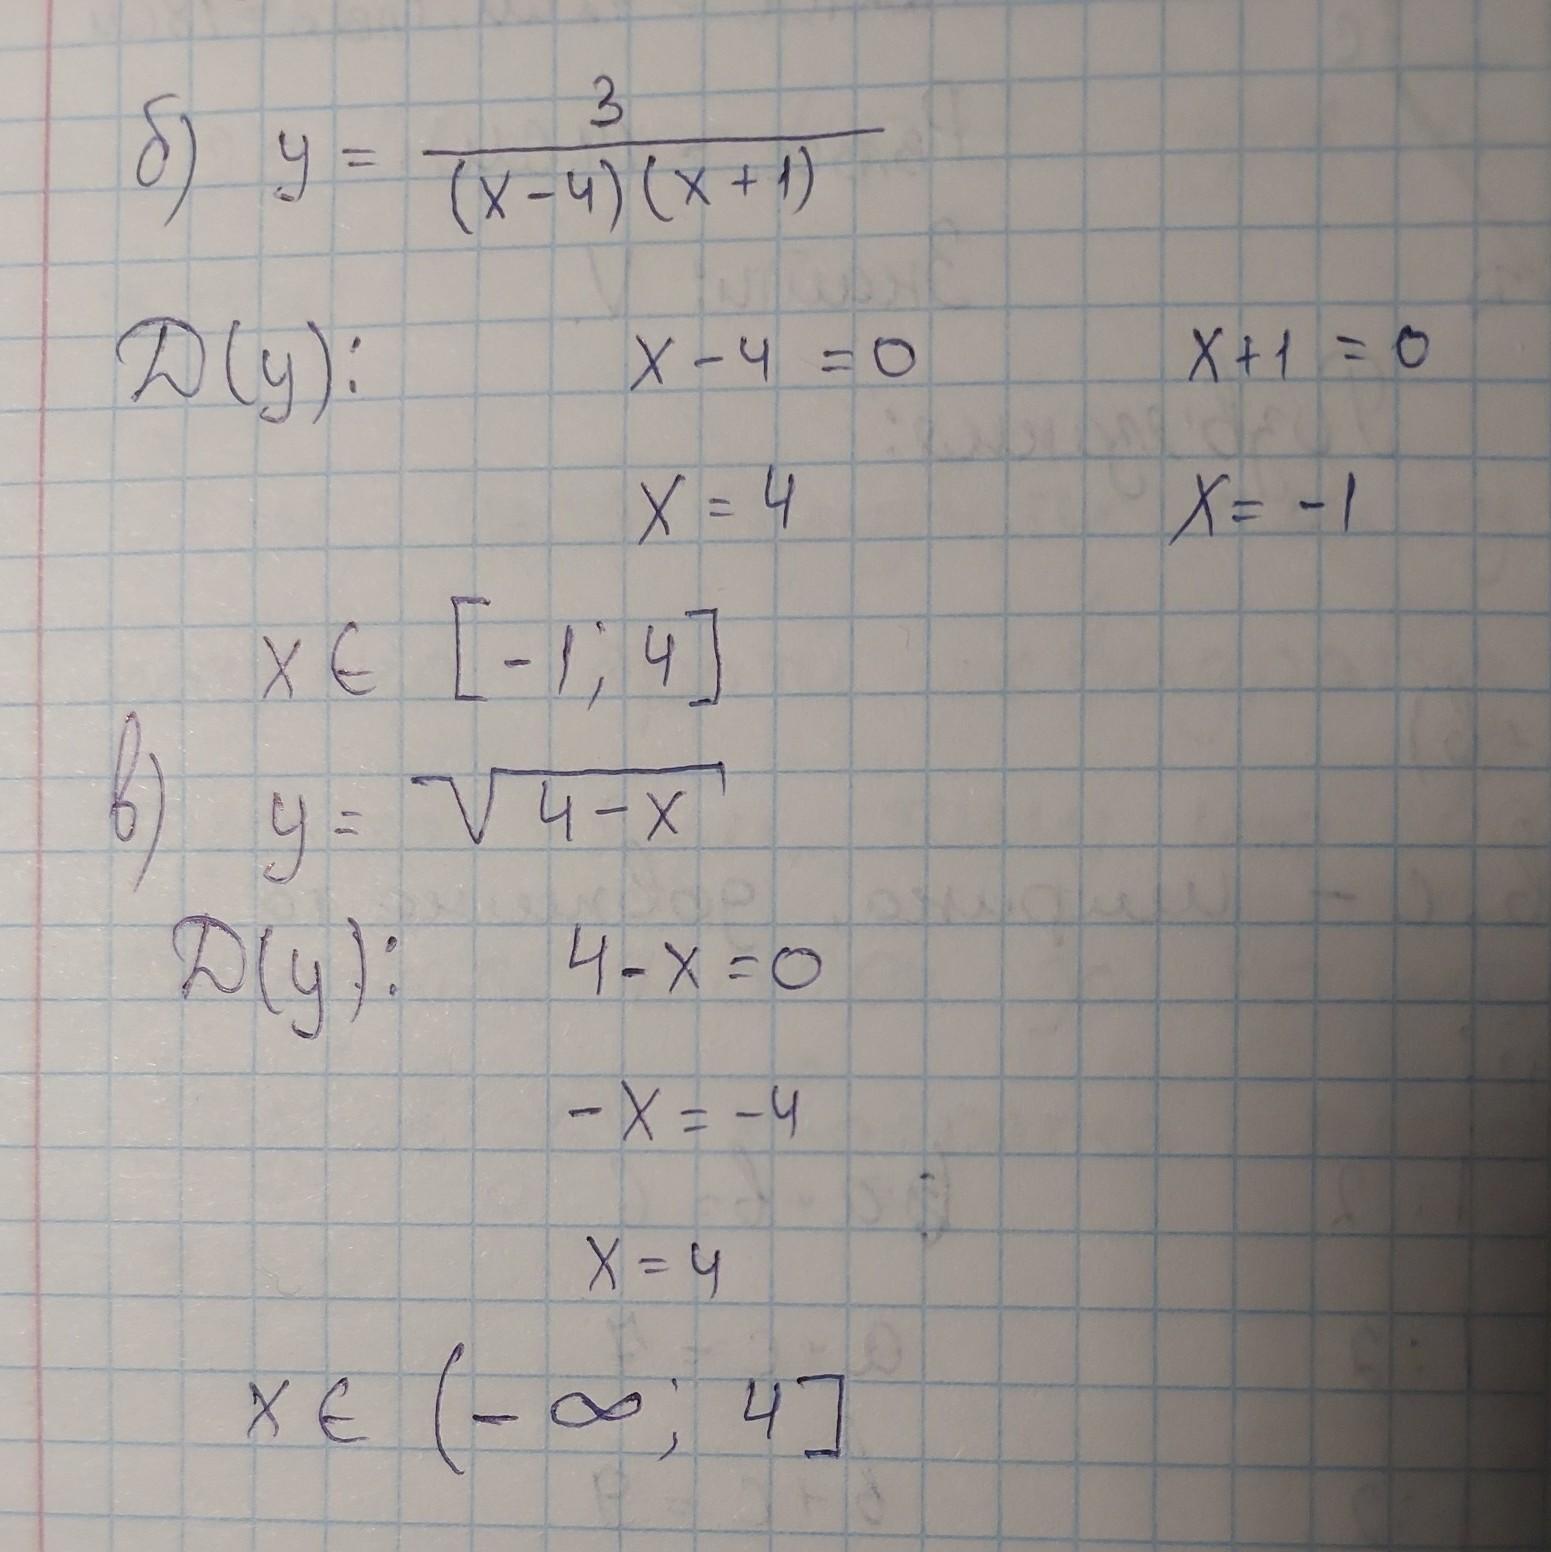 б) y = 3 / (x-4)(x+1)
D(y): x-4=0 x+1=0
x=4 x=-1
x∈ [-1; 4]
в) y = √4-x
D(y): 4-x=0
-x=-4
x=4
x∈ (-∞; 4]